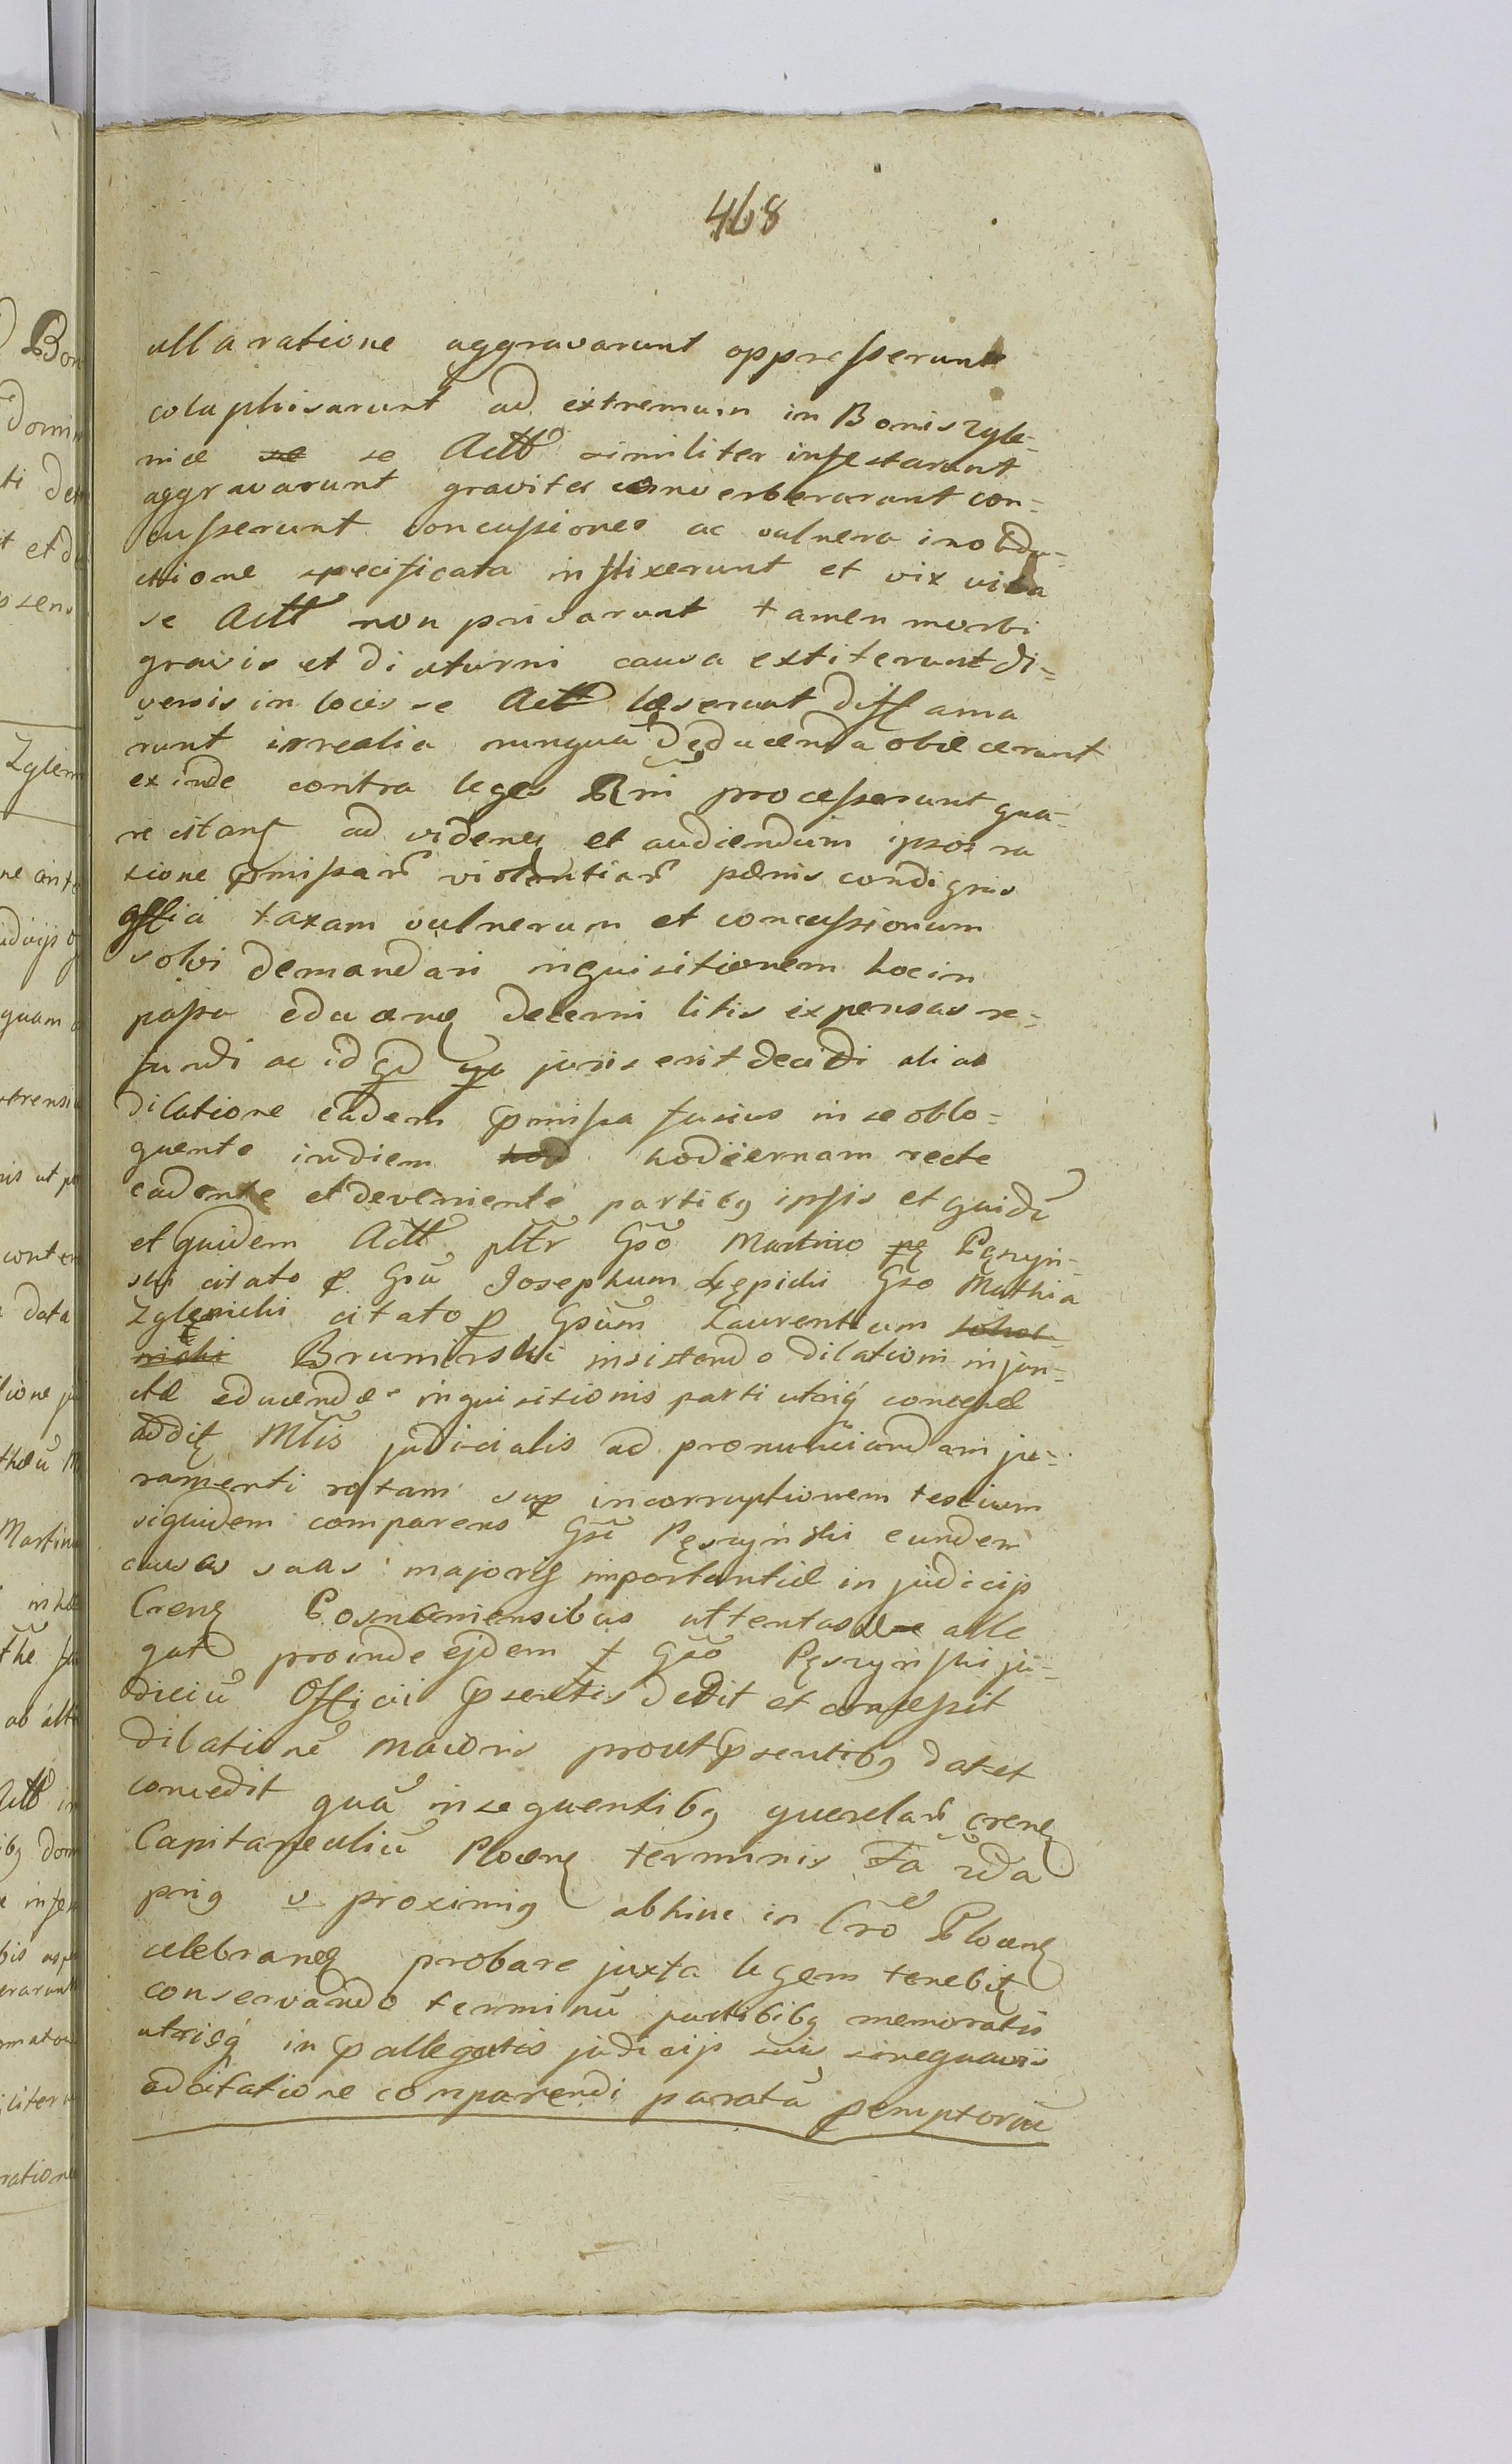 468
ulla ratione aggravarunt oppresserunt
colaphisarunt ad extremum in Bonis Zgle-
nice se se Actt similiter infestarunt
aggravarunt graviter converberarunt con-
cusserunt concussiones ac vulnera in obdu-
ctione specificata inflixerunt et vix vita
se Actt non privarunt tamen morbi
gravis et diuturni causa extiterunt di-
versis in locis se Actt læserunt diffama
runt irrealia nunquã deducenda obiecerunt
exinde contra leges Rni processerunt qua-
re citanť ad videnď et audiendum ipsos ra
tione pmissarũ violentiarũ pænis condignis
affici taxam vulnerum et concussionum
solvi demandari inquisitionem hoc in
passu educenď decerni litis expensas re-
fundi ac id qd juris erit decidi alias
dilatione eadem pmissa fusius in se oblo-
quente in diem hod hodiernam recte
cadente et deveniente partibg ipsis et quidẽ
et quidem Actt pltr Gso Martino Pęszyn-
ski citato p Gsũ Josephum Łępicki Gso Mathia
Zglenicki citato p Gsum Laurentium
Brumirski insistendo dilationi injun-
ctæ educendæ inquisitionis parti utriq concessæ
addiť Mtis judicialis ad pronunciandam ju-
ramenti rotam sup incorruptionem testium
siquidem comparens Gsũ Pęszyński eundem
causas suas majoris importantiæ in judicijs
Crenď Posnaniensibus attentas alle
gat proinde ejdem Gso Pęszyński ju-
diciũ Officii pscentis dedit et concessit
dilationẽ maioris prout psentibg dat et
concedit quã in sequentibg querelarũ Crenď
Capitanealiũ Plocenď terminis
prig s proximig abhinc in Cro Plocenď
celebranď probare juxta legem tenebiť
conservando terminũ partibibg memoratis
utrisq in pallegatis judicijs sine quavis
adcitatione comparendi paratũ pemptoriũ